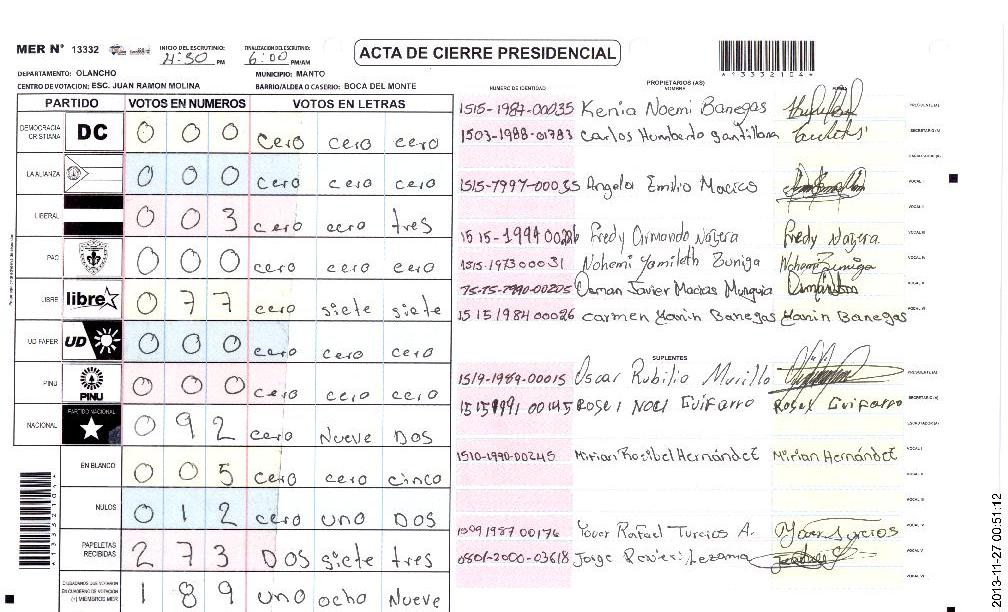 MER N° 13332 INICIO DEL ESCRUTINIO: 4:30 PM FINALIZACION DEL ESCRUTINIO: 6:00 PM/AM
ACTA DE CIERRE PRESIDENCIAL
DEPARTAMENTO: OLANCHO MUNICIPIO: MANTO
CENTRO DE VOTACION: ESC. JUAN RAMON MOLINA BARRIO/ALDEA O CASERIO: BOCA DEL MONTE
PARTIDO VOTOS EN NUMEROS VOTOS EN LETRAS
DEMOCRACIA CRISTIANA DC 0 0 0 cero cero cero
LA ALIANZA 0 0 0 cero cero cero
LIBERAL 0 0 3 cero cero tres
PAC 0 0 0 cero cero cero
LIBRE libre 0 7 7 cero siete siete
UD FAPER UD 0 0 0 cero cero cero
PINU PINU 0 0 0 cero cero cero
NACIONAL PARTIDO NACIONAL 0 9 2 cero Nueve DOS
EN BLANCO 0 0 5 cero cero cinco
NULOS 0 1 2 cero uno DOS
PAPELETAS RECIBIDAS 2 7 3 DOS siete tres
CIUDADANOS QUE VOTARON EN CUADERNO DE VOTACION (+) MIEMBROS MER 1 8 9 uno ocho Nueve
NUMERO DE IDENTIDAD PROPIETARIOS (AS) NOMBRE FIRMA
1515-1987-00035 Kenia Noemi Banegas PRESIDENTE(A)
1503-1988-01783 Carlos Humberto Santillana SECRETARIO(A)
ESCRUTADOR(A)
1515-7997-00035 Angela Emilio Macias VOCAL I
VOCAL II
1515-1994 00226 Fredy Armando Najera Fredy Najera VOCAL III
1515-1973 00031 Nohemi Yamileth Zuniga Nohemi Zuniga VOCAL IV
15-15-1990-00205 Osman Javier Macias Munguia
1515 1984 00026 Carmen Yanin Banegas Yanin Banegas
SUPLENTES
1519-1989-00015 Oscar Rubilio Murillo PRESIDENTE(A)
1515 1991 00145 Rosel Noel Guifarro Rosel Guifarro SECRETARIO(A)
ESCRUTADOR(A)
1510-1990-00245 Mirian Rosibel Hernández Mirian Hernández VOCAL I
VOCAL II
VOCAL III
1509 1987 00176 Rafael Turcios A. VOCAL IV
0801-2000-03618 Jorge Lezama VOCAL V
VOCAL VI
2013-11-27 00:51:12